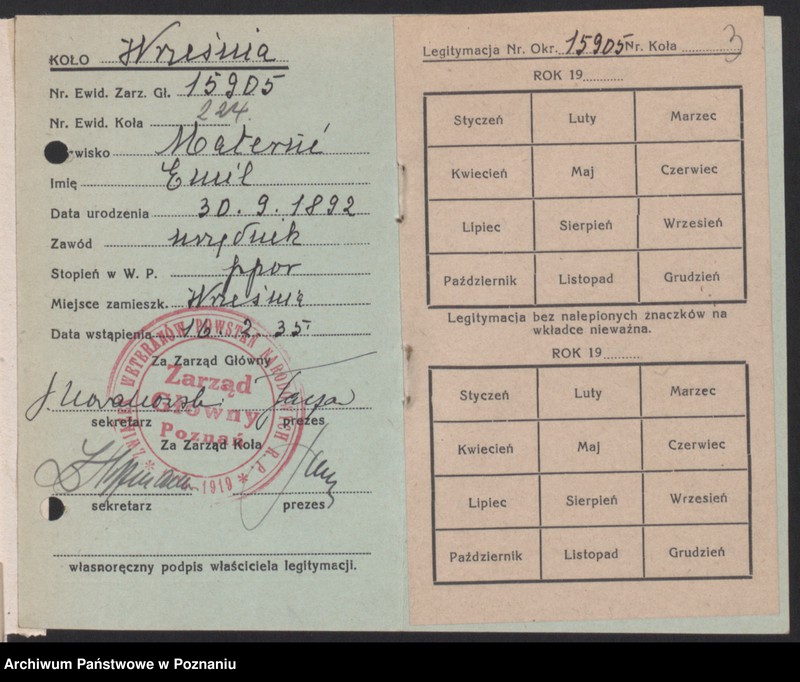 KOŁO Września
Nr. Ewid. Zarz. Gł. 15905
Nr. Ewid. Koła 224.
wisko Materné
Imię Emil
Data urodzenia 30. 9. 1892
Zawód urzędnik
Stopień w W. P. ppor
Miejsce zamieszk. Września
Data wstąpienia 16. 2. 35
Za Zarząd Główny
sekretarz prezes
Za Zarząd Koła
sekretarz prezes
własnoręczny podpis właściciela legitymacji.
WETERANÓW POWSTAŃ NARODOWYCH R.P. * 1919 *
Zarząd
Główny
Poznań
3
Legitymacja Nr. Okr. 15905 Nr. Koła
ROK 19
Styczeń Luty Marzec
Kwiecień Maj Czerwiec
Lipiec Sierpień Wrzesień
Październik Listopad Grudzień
Legitymacja bez nalepionych znaczków na
wkładce nieważna.
ROK 19
Styczeń Luty Marzec
Kwiecień Maj Czerwiec
Lipiec Sierpień Wrzesień
Październik Listopad Grudzień
Archiwum Państwowe w Poznaniu